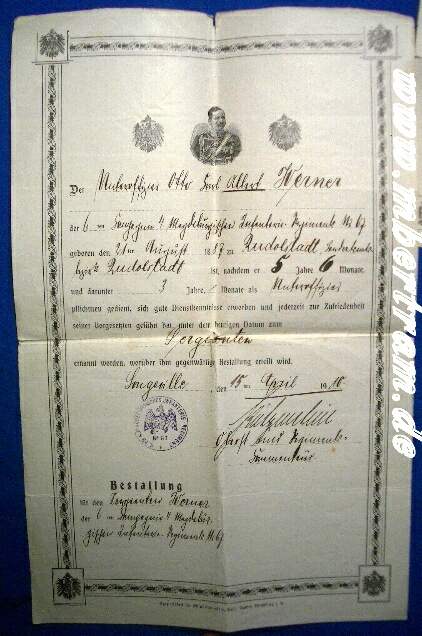 Der Unteroffizier Otto Karl Albert Werner
der 6ten Kompagnie 4 Magdeburgischen Infanterie-Regiments № 67
geboren den 21ten August 1887 zu Rudolstadt,
bezirk Rudolstadt ist, nachdem er 5 Jahre 6 Monate
und darunter 3 Jahre Monate als Unteroffizier
pflichttreu gedient, sich gute Dienstkenntnisse erworben und jederzeit zur Zufriedenheit
seiner Vorgesetzten geführt hat, unter dem heutigen Datum zum
Sergeanten
ernannt worden, worüber ihm gegenwärtige Bestallung erteilt wird.
den 15ten April 1910
Oberst und Regiments-
Kommandeur
Bestallung
für den Sergeanten Werner
der 6ten Kompagnie 4 Magdebur-
gischen Infanterie-Regiments № 67
www.mbertram.de